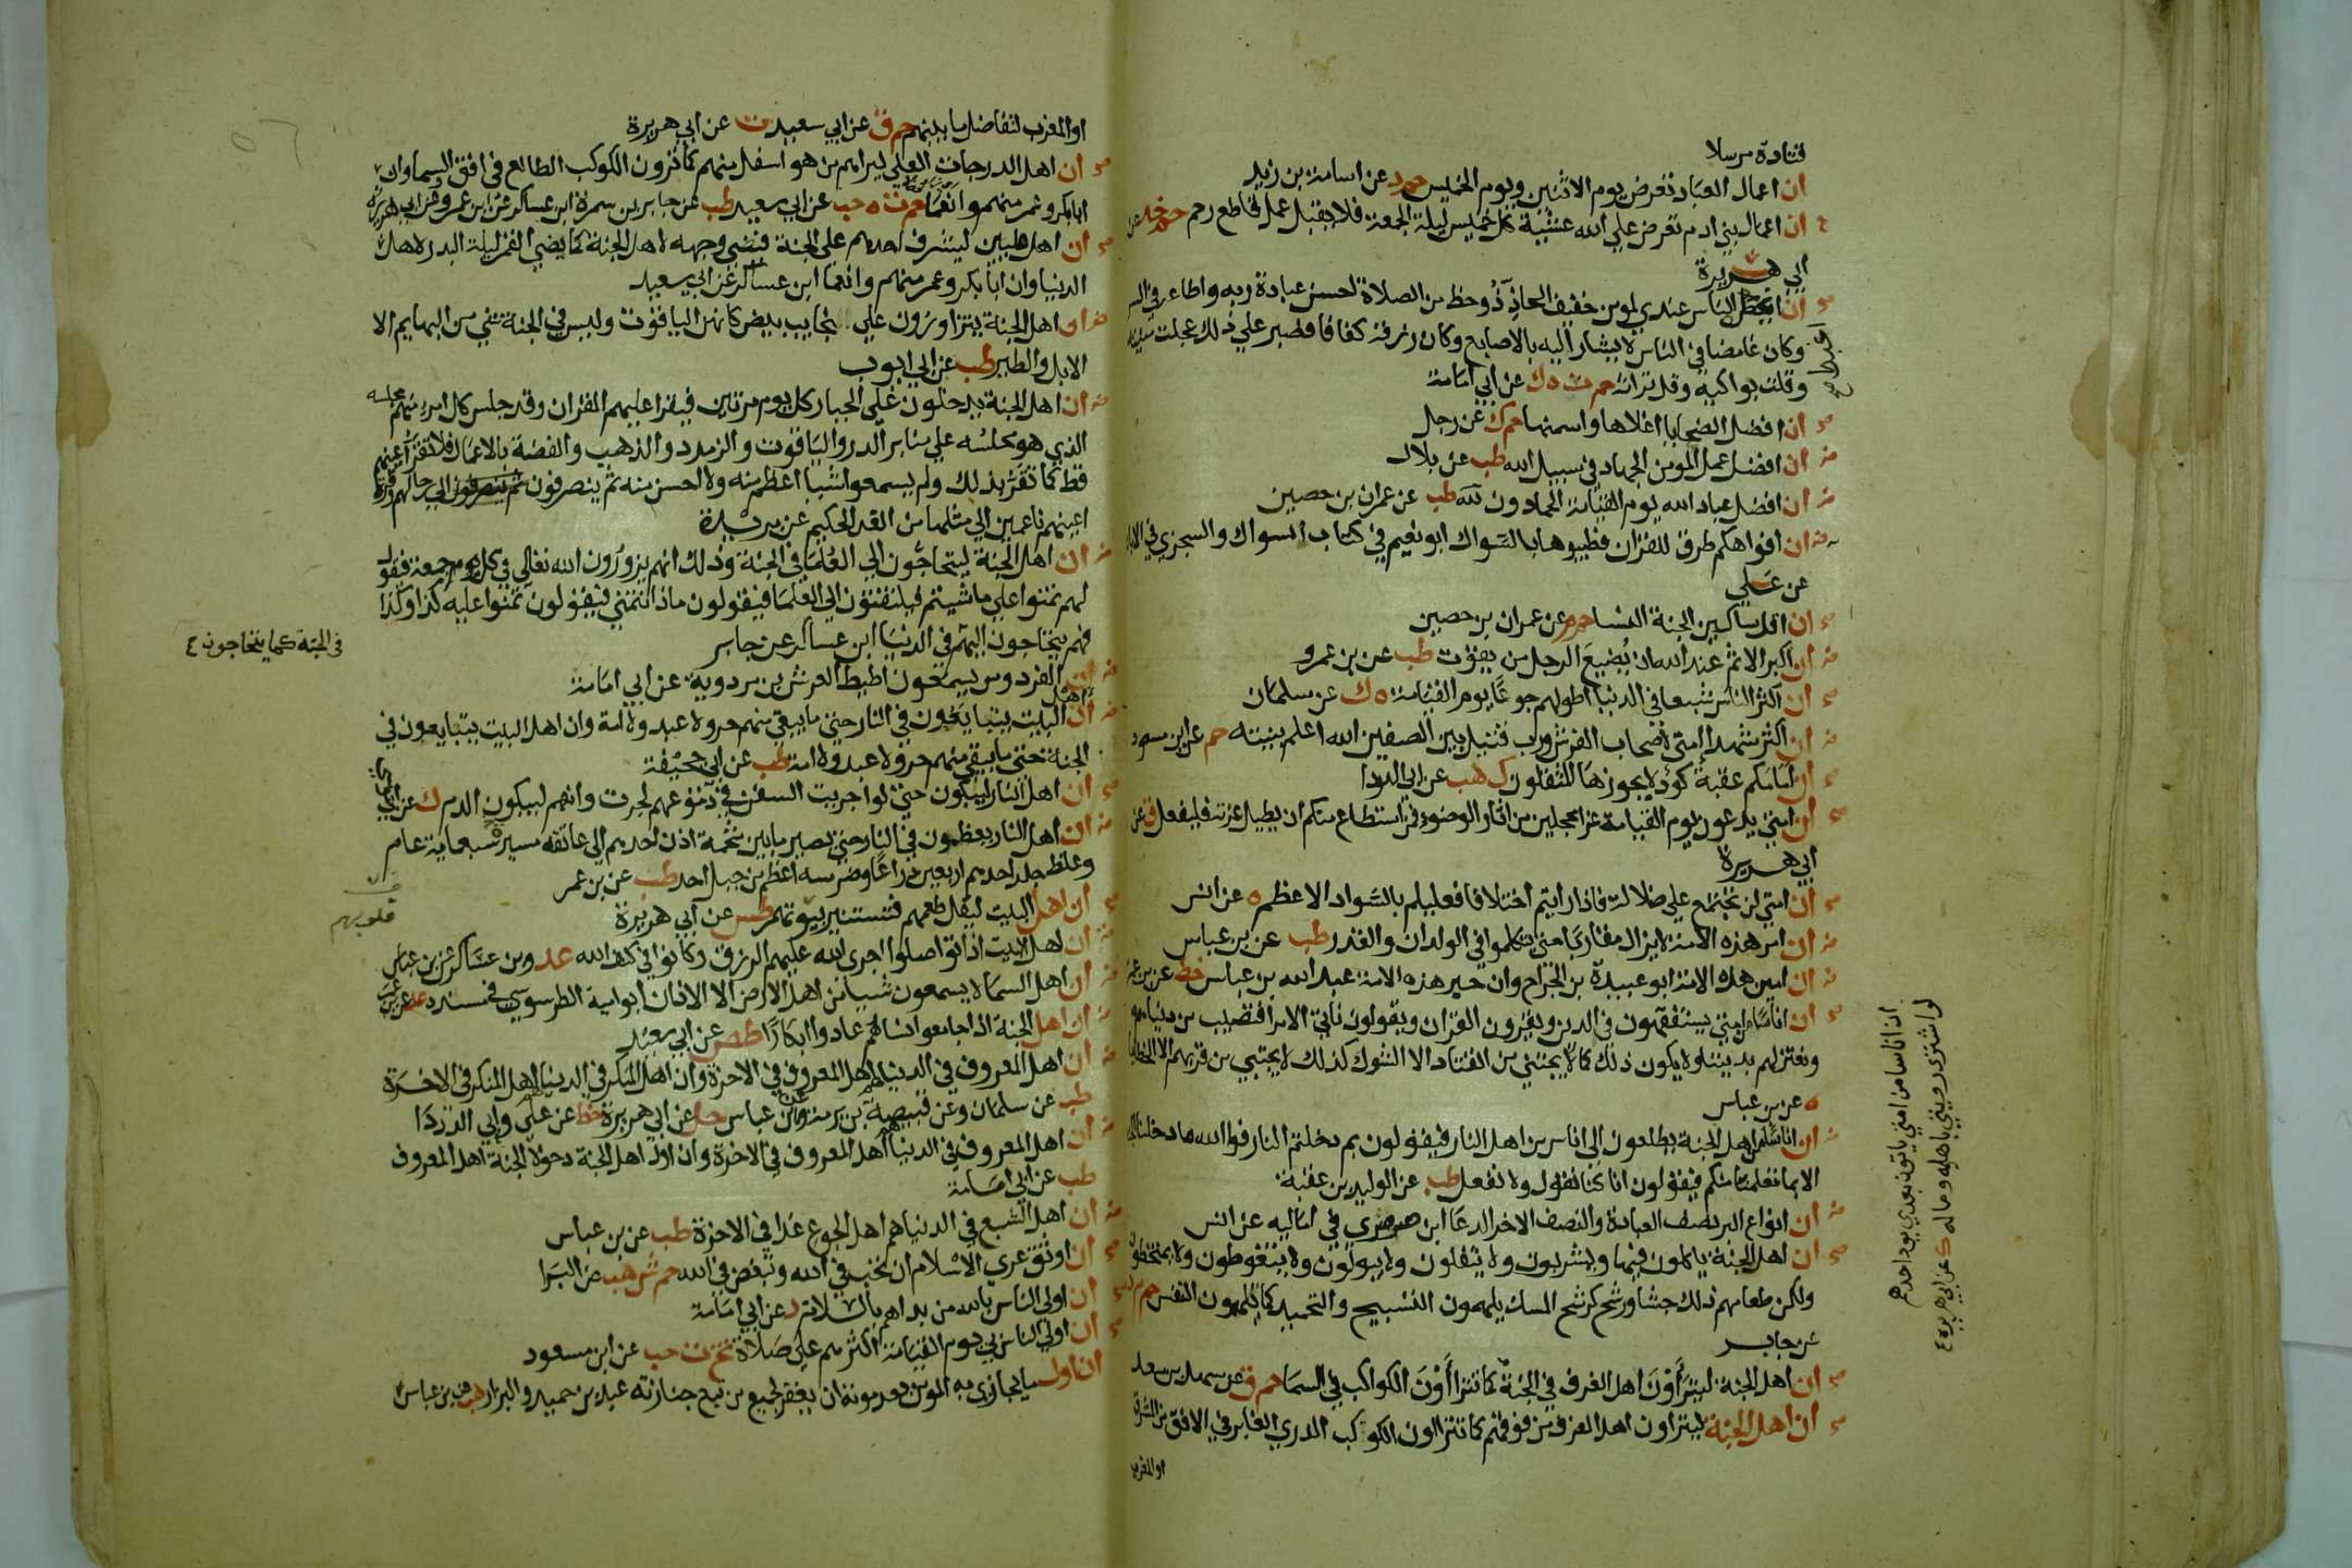 قتادة مرسلا
ان اعمال العباد تعرض يوم الاثنين ويوم الخميس حم د عن اسامة بن زيد
ان اعمال بني ادم تعرض علي الله عشية كل خميس ليلة الجمعة فلا يقبل عمل قاطع رحم حم خد عن
ابي هريرة
ان اغبط الناس عندي لمومن خفيف الحاذ ذو حظ من الصلاة احسن عبادة ربه واطاعه في السر
وكان غامضا في الناس لا يشار اليه بالاصابع وكان رزقه كفافا فصبر علي ذلك عجلت منيته
وقلت بواكيه وقل تراثه حم ت ه ك عن ابي امامة
ان افضل الضحايا اغلاها واسمنها حم ك عن رجل
ان افضل عمل المومن الجهاد في سبيل الله طب عن بلال
ان افضل عباد الله يوم القيامة الحمادون لله طب عن عمران بن حصين
ان افواهكم طرق للقران فطيبوها بالسواك ابو نعيم في كتاب السواك والسجزي في الابانة
عن علي
ان اقل ساكنين الجنة النسا حم م عن عمران بن حصين
ان اكبر الاثم عند الله ان يضيع الرجل من يقوت طب عن بن عمرو
ان اكثر الناس شبعا في الدنيا اطولهم جوعا يوم القيامة ه ك عن سلمان
ان اكثر شهدا امتي لاصحاب الفرش ورب قتيل بين الصفين الله اعلم بنيته حم عن ابن مسعود
ان امامكم عقبة كؤد لا يجوزها المثقلون ك هب عن ابي الدردا
ان امتي يدعون يوم القيامة غرا محجلين من اثار الوضوء فمن استطاع منكم ان يطيل غرته فليفعل ق عن
ابي هريرة
ان امتي لن تجتمع علي ضلالة فاذا رايتم اختلافا فعليكم بالسواد الاعظم ه عن انس
ان امر هذه الامة لا يزال مقاربا حتي يتكلموا في الولدان والقدر طب عن بن عباس
ان امين هذه الامة ابو عبيدة بن الجراح وان حبر هذه الامة عبد الله بن عباس خط عن بن عمر
ان اناسا من امتي يستفقهون في الدين ويقرون القران ويقولون ناتي الامرا فنصيب من دنياهم
ونعتزلهم بديننا ولا يكون ذلك كما لا يجتني من القتاد الا الشوك كذلك لا يجتني من قربهم الا الخطايا
ه عن بن عباس
ان اناسا من اهل الجنة يطلعون الي اناس من اهل النار فيقولون بم دخلتم النار فوالله ما دخلنا الجنة
الا بما تعلمنا منكم فيقولون انا كنا نقول ولا نفعل طب عن الوليد بن عقبة
ان انواع البر نصف العبادة والنصف الاخر الدعا ابن صصري في اماليه عن انس
ان اهل الجنة ياكلون فيها ويشربون ولا يتفلون ولا يبولون ولا يتغوطون ولا يمتخطون
ولكن طعامهم ذلك جشا ورشح كرشح المسك يلهمون التسبيح والتحميد كما يلهمون النفس حم م د
عن جابر
ان اهل الجنة ليتراؤن اهل الغرف في الجنة كما تتراأون الكواكب في السما حم ق عن سهل بن سعد
ان اهل الجنة ليتراون اهل الغرف من فوقهم كما تتراون الكوكب الدري الغابر في الافق من المشرق
او المغرب
ان اناسا من امتي ياتون بعدي يود احدهم
لو اشتري رويتي باهله وماله ك عن ابي هريرة
او المغرب لتفاضل ما بينهم حم ق عن ابي سعيد ت عن ابي هريرة
ان اهل الدرجات العلي ليراهم من هو اسفل منهم كما ترون الكوكب الطالع في افق السما وان
ابا بكر وعمر منهم وانعما حم ت ه حب عن ابي سعيد طب عن جابر بن سمرة ابن عساكر عن ابن عمرو وعن ابي هريرة
ان اهل عليين ليشرف احدهم علي الجنة فيضي وجهه لاهل الجنة كما يضي القمر ليلة البدر لاهل
الدنيا وان ابا بكر وعمر منهم وانعما ابن عساكر عن ابي سعيد
ان اهل الجنة يتزاورون علي نجايب بيض كانهن الياقوت وليس في الجنة شي من البهايم الا
الابل والطير طب عن ابي ايوب
ان اهل الجنة يدخلون علي الجبار كل يوم مرتين فيقرا عليهم القران وقد جلس كل امرء منهم مجلسه
الذي هو مجلسه علي منابر الدر والياقوت والزمرد والذهب والفضة بالاعمال فلا تقر اعينهم
قط كما تقر بذلك ولم يسمعوا شيا اعظم منه ولا احسن منه ثم ينصرفون ثم ينصرفون الي رحالهم وقرة
اعينهم ناعمين الي مثلها من الغد الحكيم عن بريدة
ان اهل الجنة ليحتاجون الي العلما في الجنة وذلك انهم يزورون الله تعالي في كل يوم جمعة فيقول
لهم تمنوا علي ما شيتم فيلتفتون الي العلما فيقولون ماذا نتمني فيقولون تمنوا عليه كذا وكذا
فهم يحتاجون اليهم في الدنيا ابن عساكر عن جابر
في الجنة كما يحتاجون
ان اهل الفردوس يسمعون اطيط العرش بن مردوية عن ابي امامة
ان اهل البيت يتبايعون في النار حتي ما يبقي منهم حر ولا عبد ولا امة وان اهل البيت يتبايعون في
الجنة حتي ما يبقي منهم حر ولا عبد ولا امة طب عن ابي جحيفة
ان اهل النار ليبكون حتي لو اجريت السفن في دموعهم لجرت وانهم ليبكون الدم ك عن ابي
ان اهل النار يعظمون في النار حتي يصير ما بين شحمة اذن احدهم الي عاتقه مسيرة سبعماية عام
وغلظ جلد احدهم اربعين ذراعا وضرسه اعظم من جبل احد طب عن بن عمر
ان اهل البيت ليقل طعمهم فتستنير بيوتهم طس عن ابي هريرة
قلوبهم
ان اهل البيت اذا تواصلوا اجري الله عليهم الرزق وكانوا في كنف الله عد وبن عساكر عن بن عباس
ان اهل السما لا يسمعون شيا من اهل الارض الا الاذان ابو امية الطرسوسي في مسنده عد عن بن عمر
ان اهل الجنة اذا جامعوا نساهم عادوا ابكارا طص عن ابي سعيد
ان اهل المعروف في الدنيا هم اهل المعروف في الاخرة وان اهل المنكر في الدنيا هم اهل المنكر في الاخرة
طب عن سلمان وعن قبيصة بن برمة وعن ابن عباس حل عن ابي هريرة خط عن علي وابي الدردا
ان اهل المعروف في الدنيا هم اهل المعروف في الاخرة وان اول اهل الجنة دخولا الجنة اهل المعروف
طب عن ابي امامة
ان اهل الشبع في الدنيا هم اهل الجوع غدا في الاخرة طب عن بن عباس
ان اوثق عري الاسلام ان تحب في الله وتبغض في الله حم ش هب عن البرا
ان اولي الناس بالله من بداهم بالسلام د عن ابي امامة
ان اولي الناس بي يوم القيامة اكثرهم علي صلاة تخ ت حب عن ابن مسعود
ان اول ما يجازي به المومن بعد موته ان يغفر لجميع من تبع جنازته عبد بن حميد والبزار هب عن بن عباس